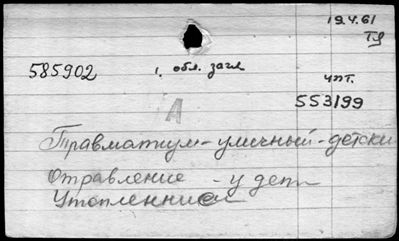 19.4.61
ТЯ
585902
1. обл. загл
чпт.
553199
А
Травматизм-уличный-детски
Отравление - у дет
Утопленники